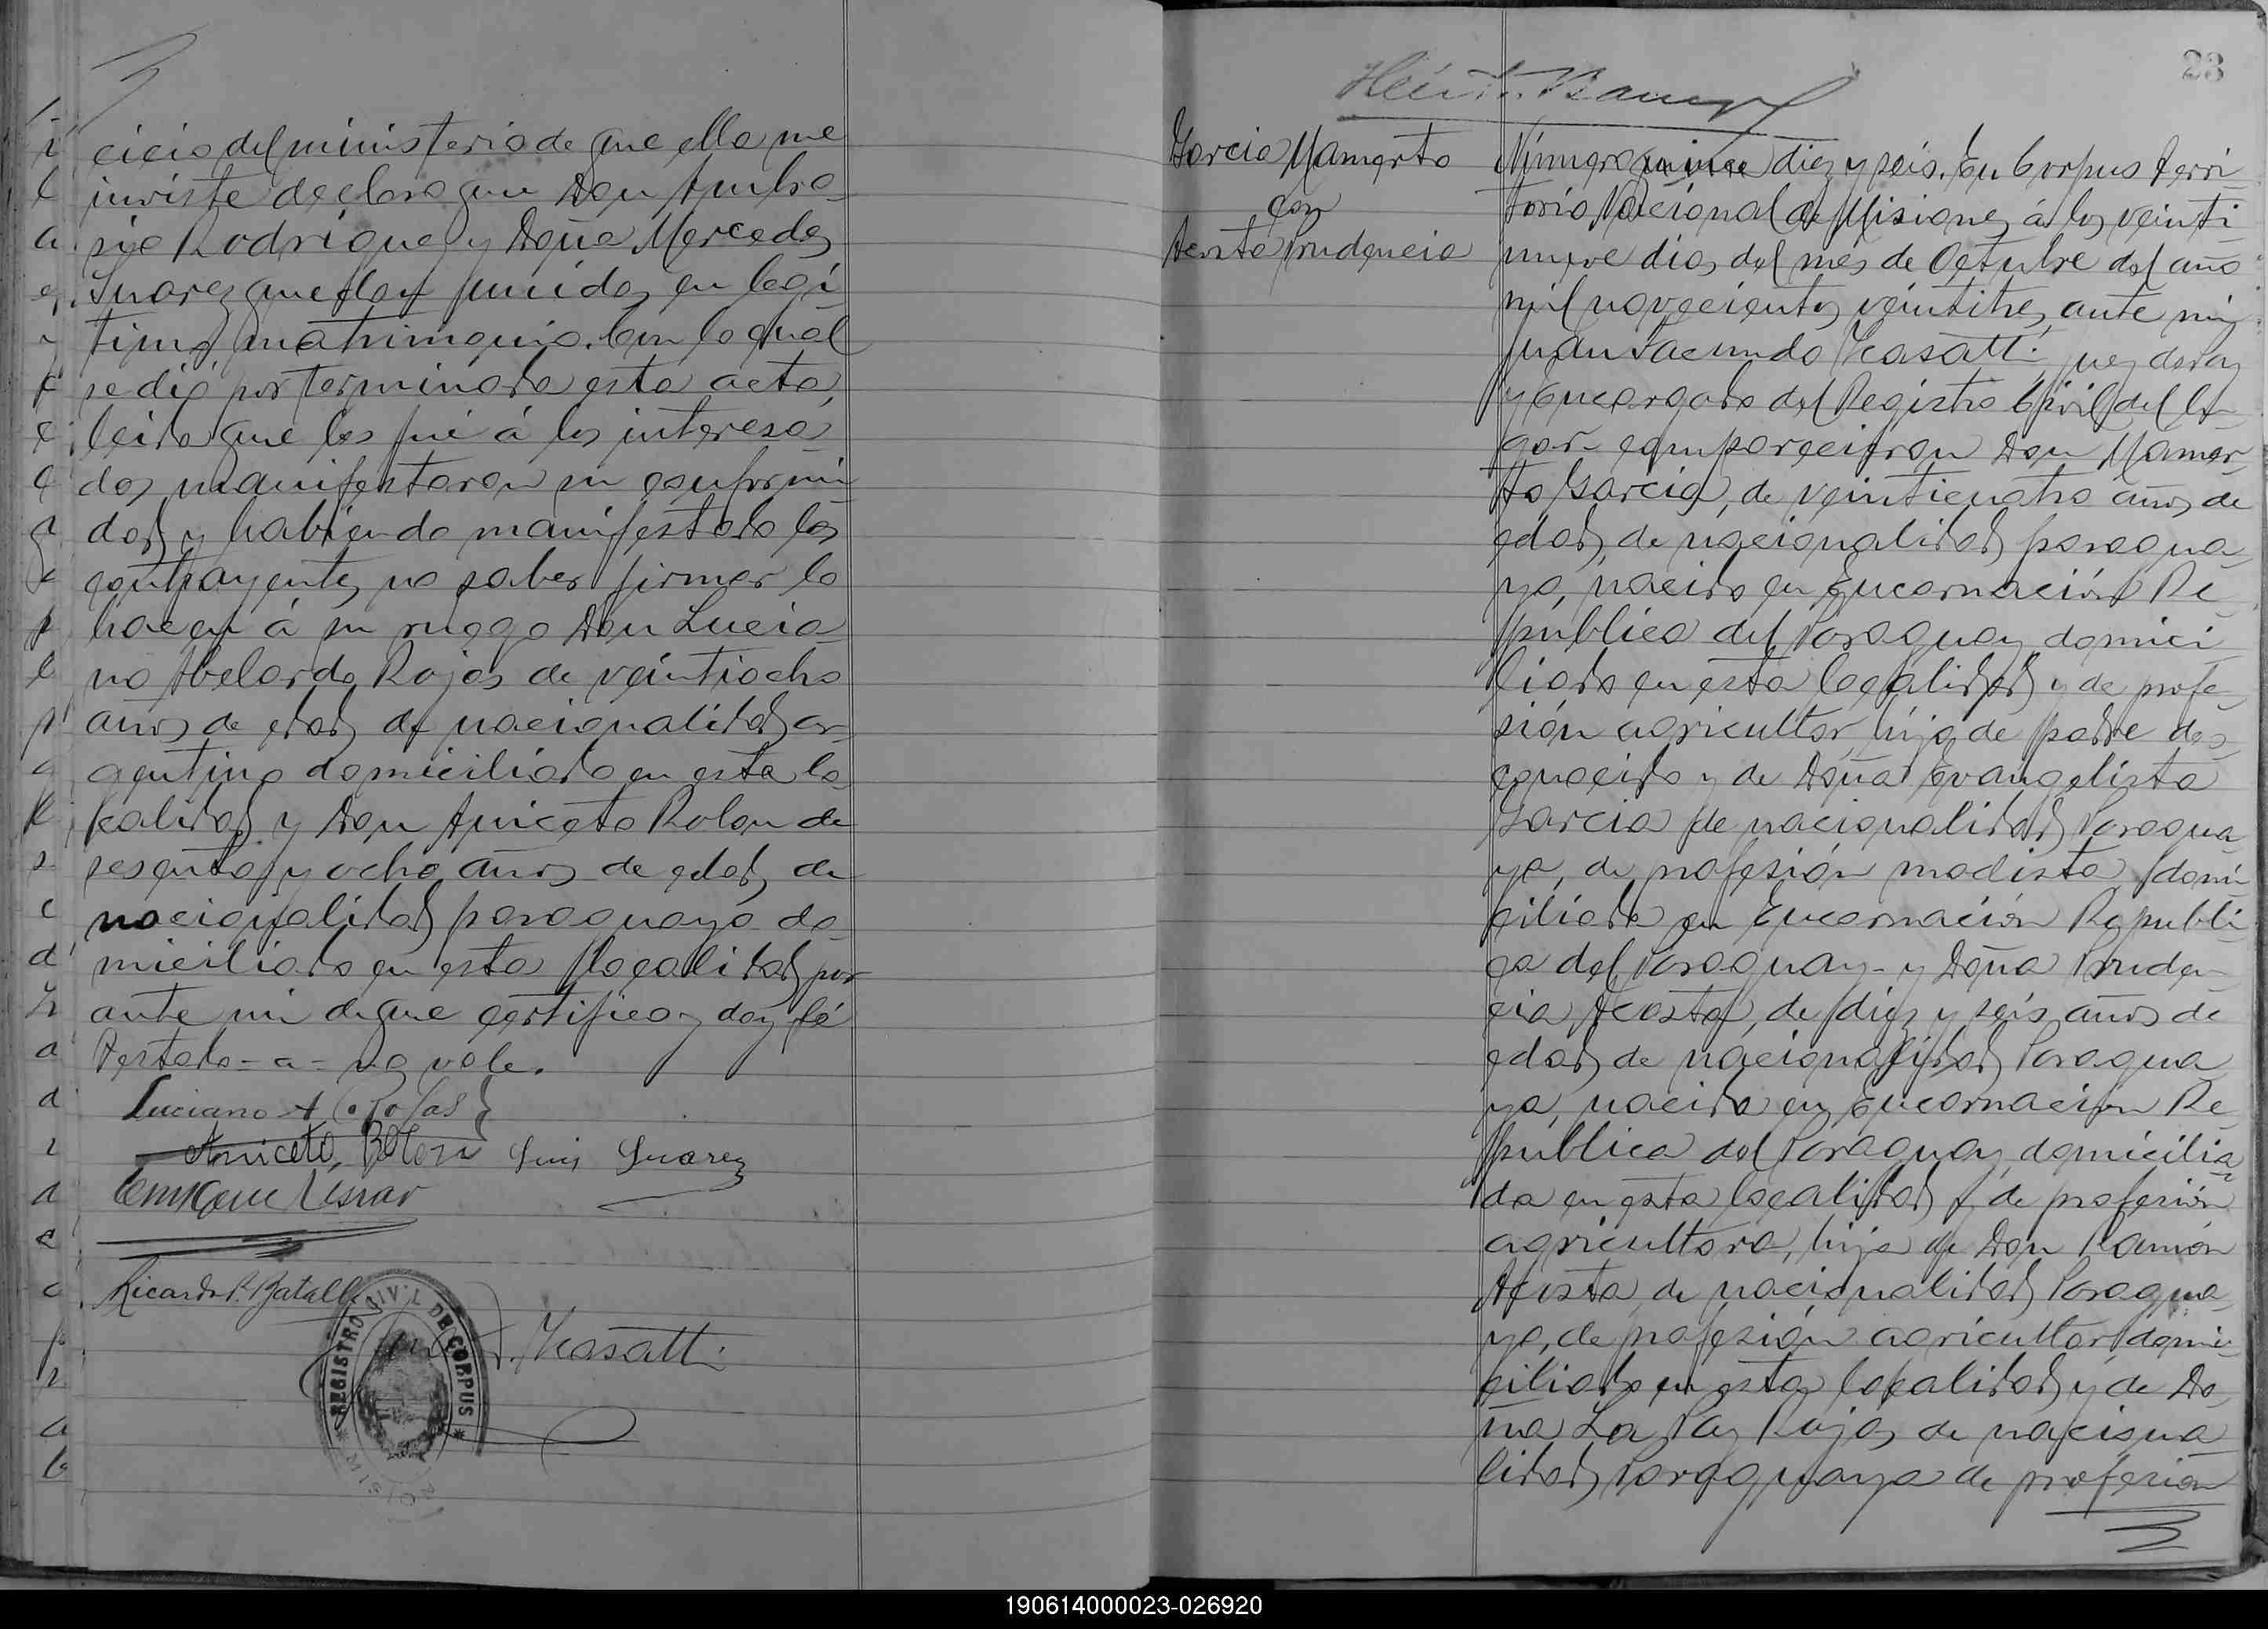 cicio del ministerio de que ella me
inviste declaro que Don Ambro-
sio Rodriguez y Doña Mercedes
Suarez quedan unidos en legi-
timo matrimonio. Con lo qual
se dió por terminada esta acta,
leida que les fué á los interesa-
dos manifestaron su conformi-
dad y habiendo manifestado los
contrayentes no saber firmar lo
hacen á su ruego Don Lucia-
no Abelardo Rojas de veintiocho
años de edad de nacionalidad ar-
gentino domiciliado en esta lo-
calidad y Don Aniceto Rolon de
sesenta y ocho años de edad, de
nacionalidad paraguayo do-
miciliado en esta localidad por
ante mi de que certifico y doy fé
Testado = a = no vale.
Luciano A Rojas
Aniceto Rolon Luis Suarez
Enrique
Ricardo P. Batalla
Juan F. Kasatti
REGISTRO CIVIL DE CORPUS
23
Garcia Mamerto
con
Acosta Prudencia
Número quince diez y seis. En Corpus Terri-
torio Nacional de Misiones á los veinti-
nueve dias del mes de Octubre del año
mil novecientos veintitres, ante mi,
Juan Facundo Kasatti, Juez de Paz
y Encargado del Registro Civil del lu-
gar comparecieron Don Mamer-
to Garcia, de veinticuatro años de
edad, de nacionalidad paragua-
yo, nacido en Encarnación Re-
pública del Paraguay, domici-
liado en esta localidad y de profe-
sión agricultor, hijo de padre des-
conocido y de Doña Evangelista
Garcia de nacionalidad Paragua-
ya, de profesión modista domi-
ciliada en Encarnación Republi-
ca del Paraguay - y Doña Pruden-
cia Acosta, de diez y seis años de
edad, de nacionalidad Paragua-
ya, nacida en Encarnacion Re-
pública del Paraguay, domicilia-
da en esta localidad y de profesión
agricultora, hija de Don Ramón
Acosta, de nacionalidad Paragua-
yo, de profesión agricultor domi-
ciliado en esta localidad y de Do-
ña La Paz Rojas, de naciona-
lidad Paraguaya de profesión
190614000023-026920